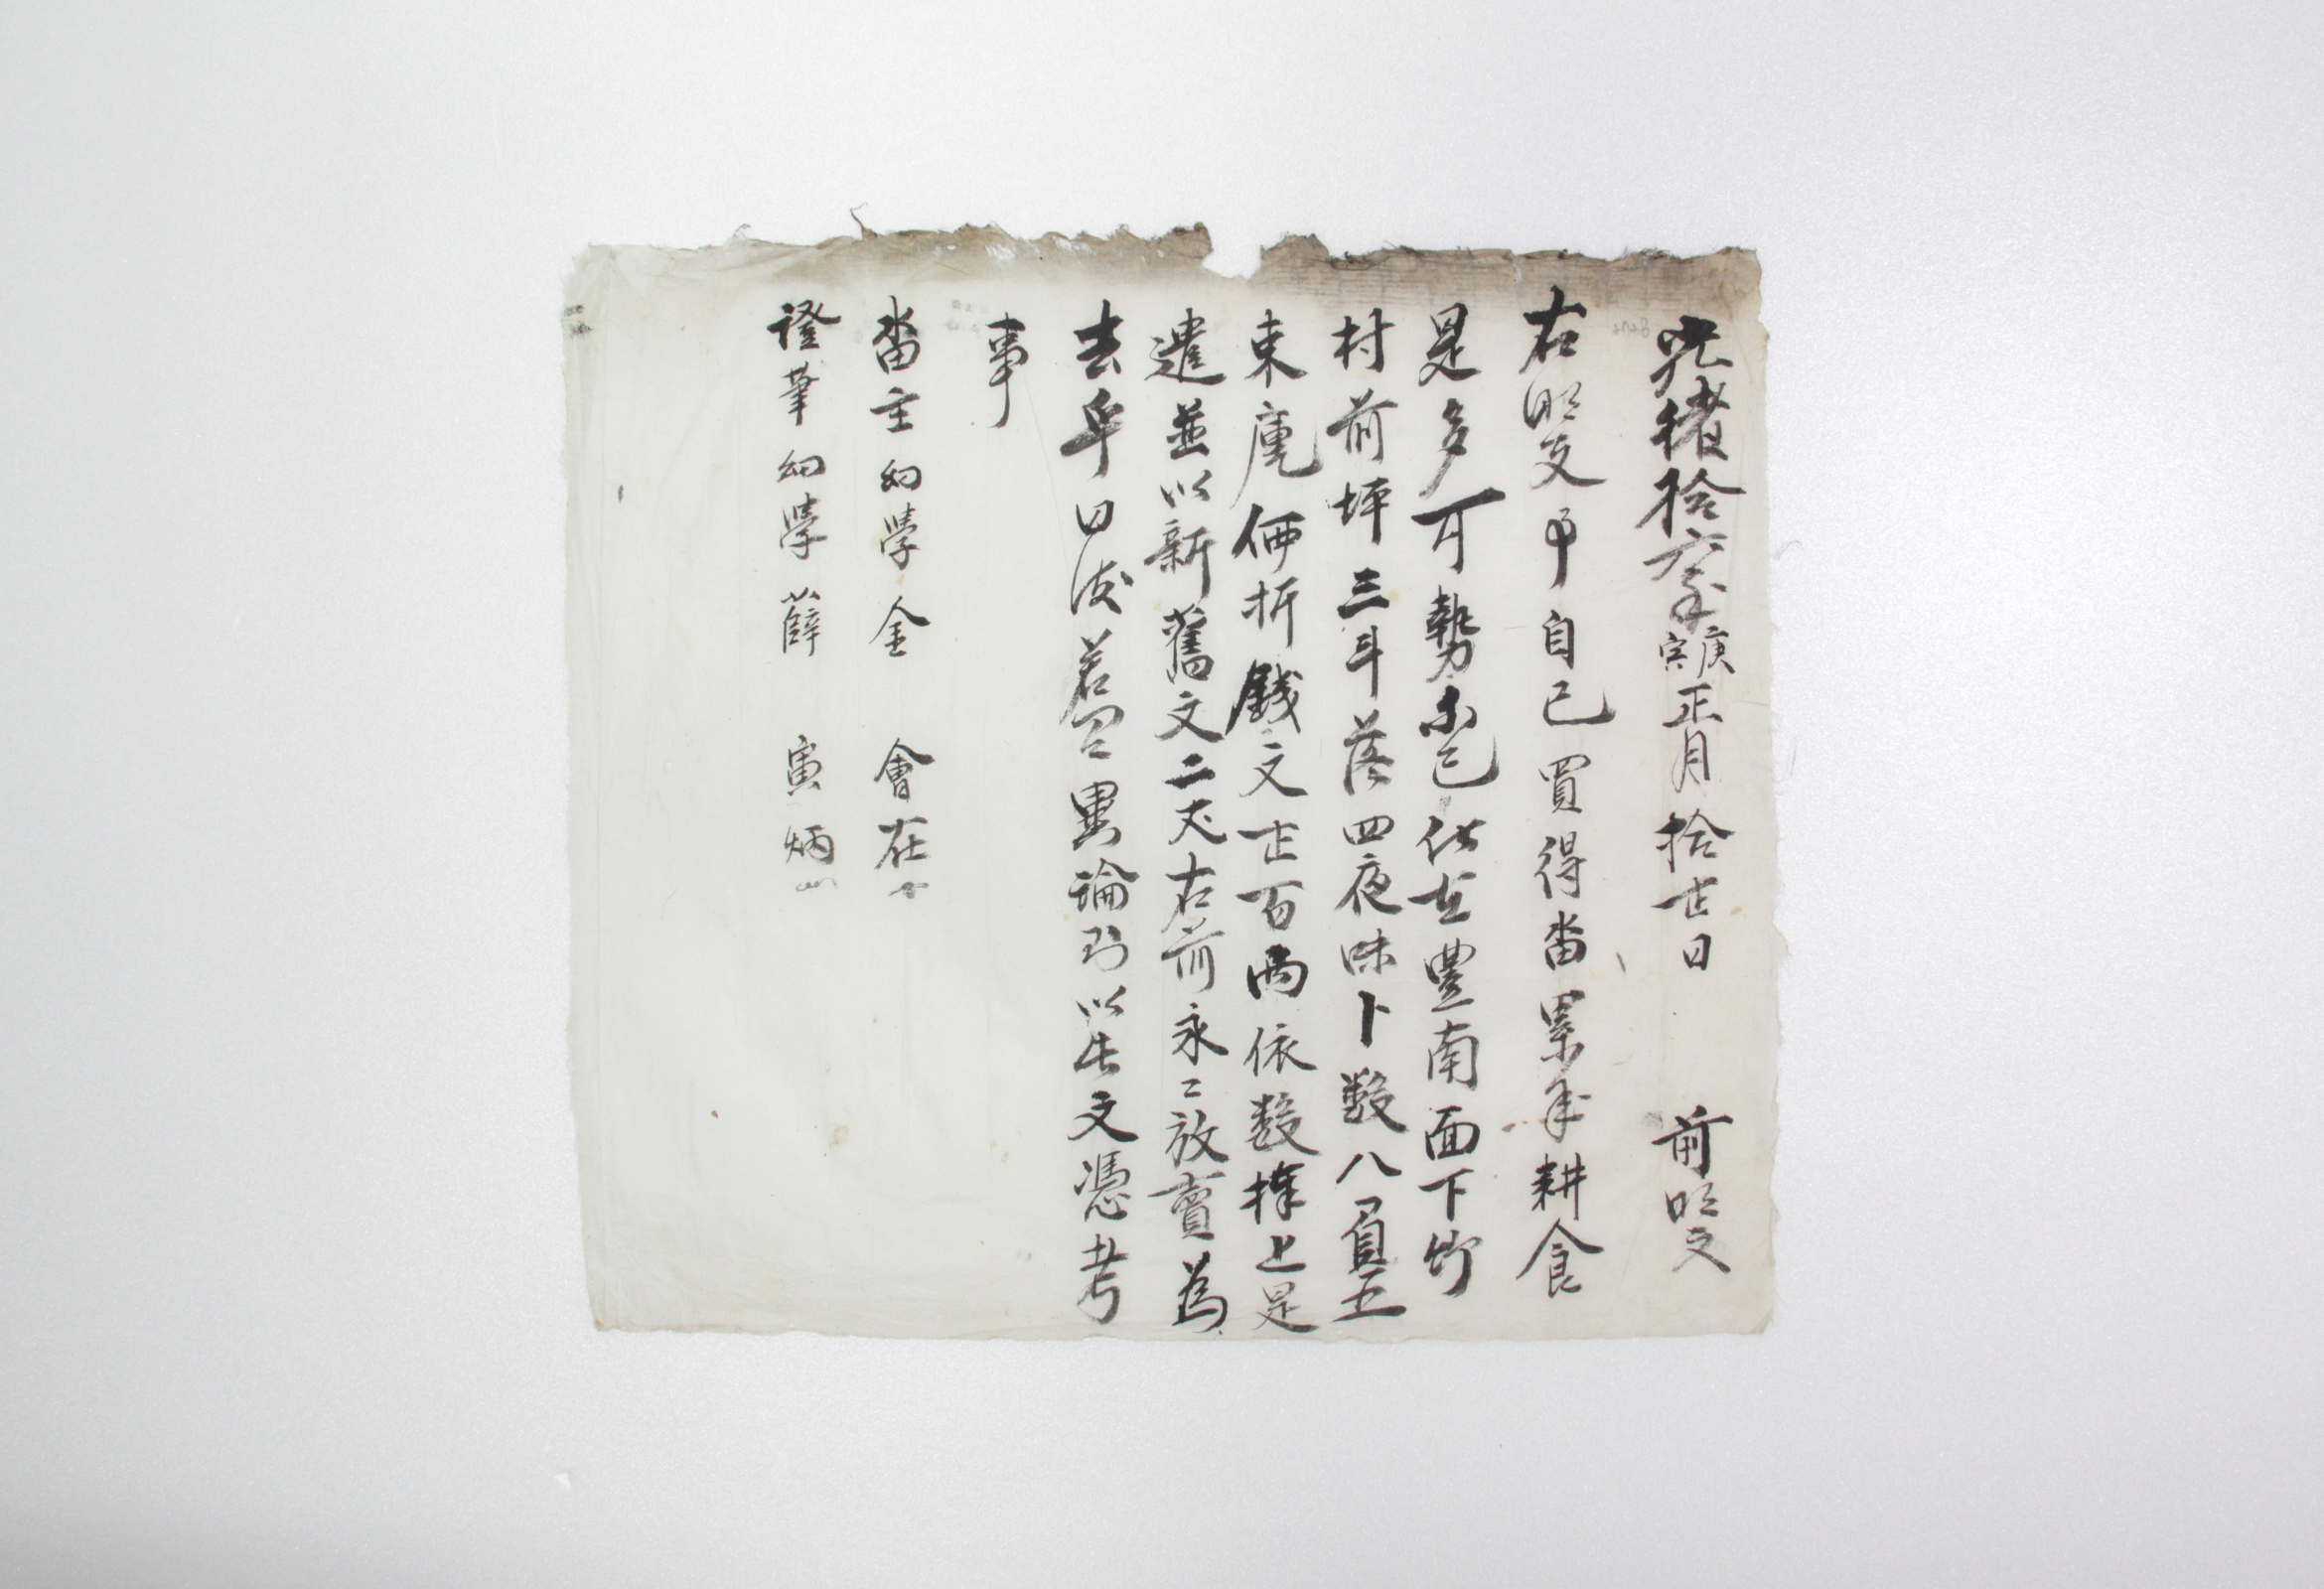 光緖拾六年庚寅正月拾七日 前明文
右明文事自己買得畓累年耕食
是多可勢不已伏在豊南面下竹
村前坪三斗落四夜味卜數八負五
束庫価折錢文七百兩依數捧上是
遣並以新舊文二丈右前永〻放賣爲
去乎日後若有異論則以此文憑考
事
畓主幼學金 會在
證筆幼學薛 寅炳